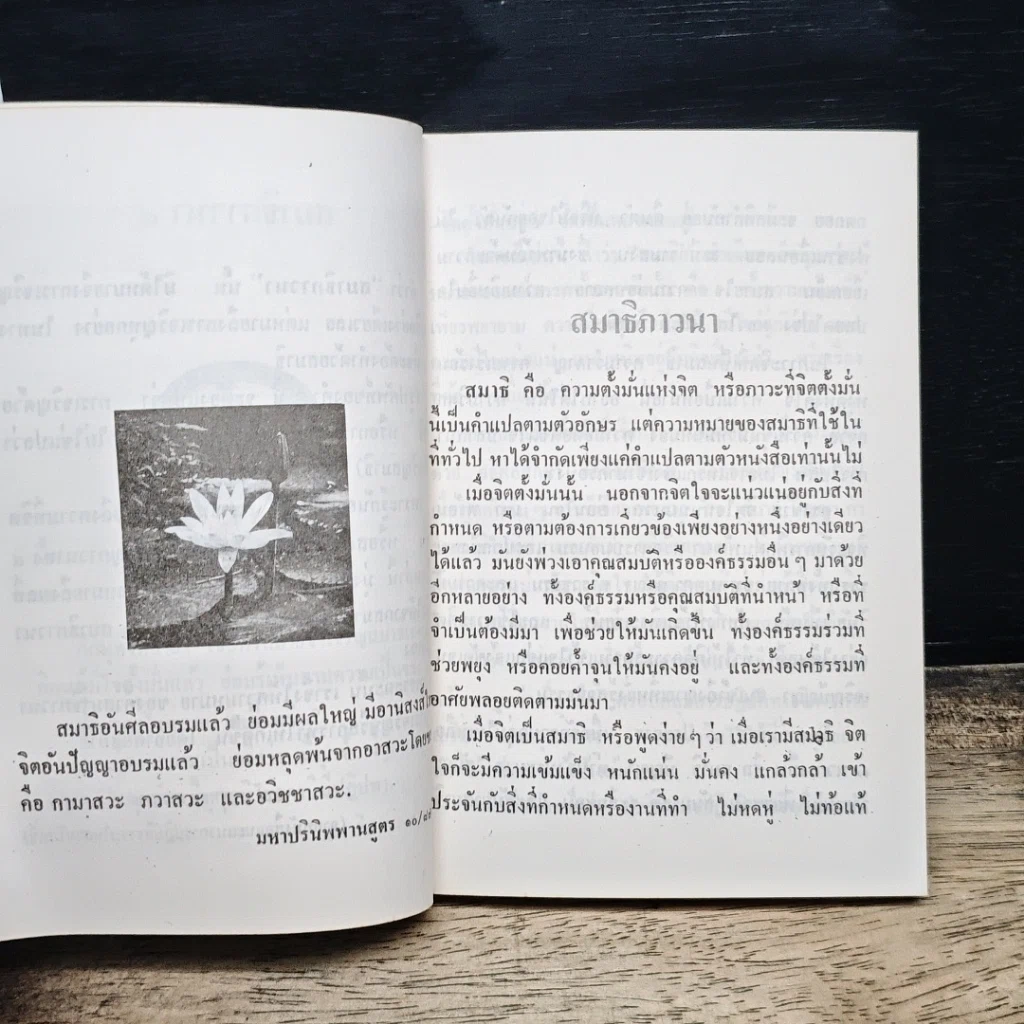 สมาธิอันศีลอบรมแล้ว ย่อมมีผลใหญ่ มีอานิสงส์
จิตอันปัญญาอบรมแล้ว ย่อมหลุดพ้นจากอาสวะ
คือ กามาสวะ ภวาสวะ และอวิชชาสวะ.
มหาปรินิพพานสูตร ๑๐/
สมาธิภาวนา
สมาธิ คือ ความตั้งมั่นแห่งจิต หรือภาวะที่จิตตั้งมั่น
นี้เป็นคำแปลตามตัวอักษร แต่ความหมายของสมาธิที่ใช้ใน
ที่ทั่วไป หาได้จำกัดเพียงแค่คำแปลตามตัวหนังสือเท่านั้นไม่
เมื่อจิตตั้งมั่นนั้น นอกจากจิตใจจะแน่วแน่อยู่กับสิ่งที่
กำหนด หรือตามต้องการเกี่ยวข้องเพียงอย่างหนึ่งอย่างเดียว
ได้แล้ว มันยังพ่วงเอาคุณสมบัติหรือองค์ธรรมอื่น ๆ มาด้วย
อีกหลายอย่าง ทั้งองค์ธรรมหรือคุณสมบัติที่นำหน้า หรือที่
จำเป็นต้องมีมา เพื่อช่วยให้มันเกิดขึ้น ทั้งองค์ธรรมร่วมที่
ช่วยพยุง หรือคอยค้ำจุนให้มันคงอยู่ และทั้งองค์ธรรมที่
อาศัยพลอยติดตามมันมา
เมื่อจิตเป็นสมาธิ หรือพูดง่าย ๆ ว่า เมื่อเรามีสมาธิ จิต
ใจก็จะมีความเข้มแข็ง หนักแน่น มั่นคง แกล้วกล้า เข้า
ประจันกับสิ่งที่กำหนดหรืองานที่ทำ ไม่หดหู่ ไม่ท้อแท้